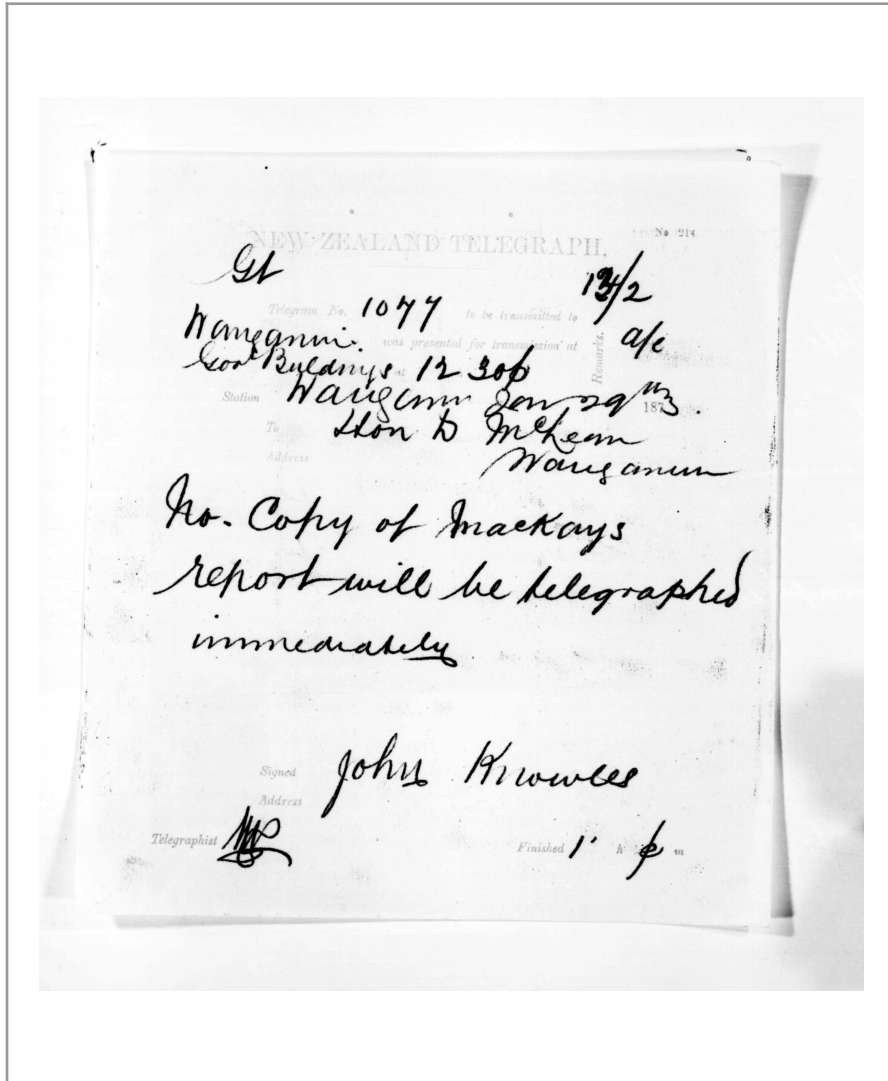 No 214
NEW ZEALAND TELEGRAPH.
Gt
Telegram No. 1077 to be transmitted to
Wanganui. was presented for transmission at a/c
Remarks.
Govt Buildnys at 12 30p
Station Wanganui Jan 29th 1873.
To Hon D McLean
Address Wanganui
No. Copy of Mackays
report will be telegraphed
immediately
Signed John Knowles
Address
Telegraphist
Finished 1 h p m